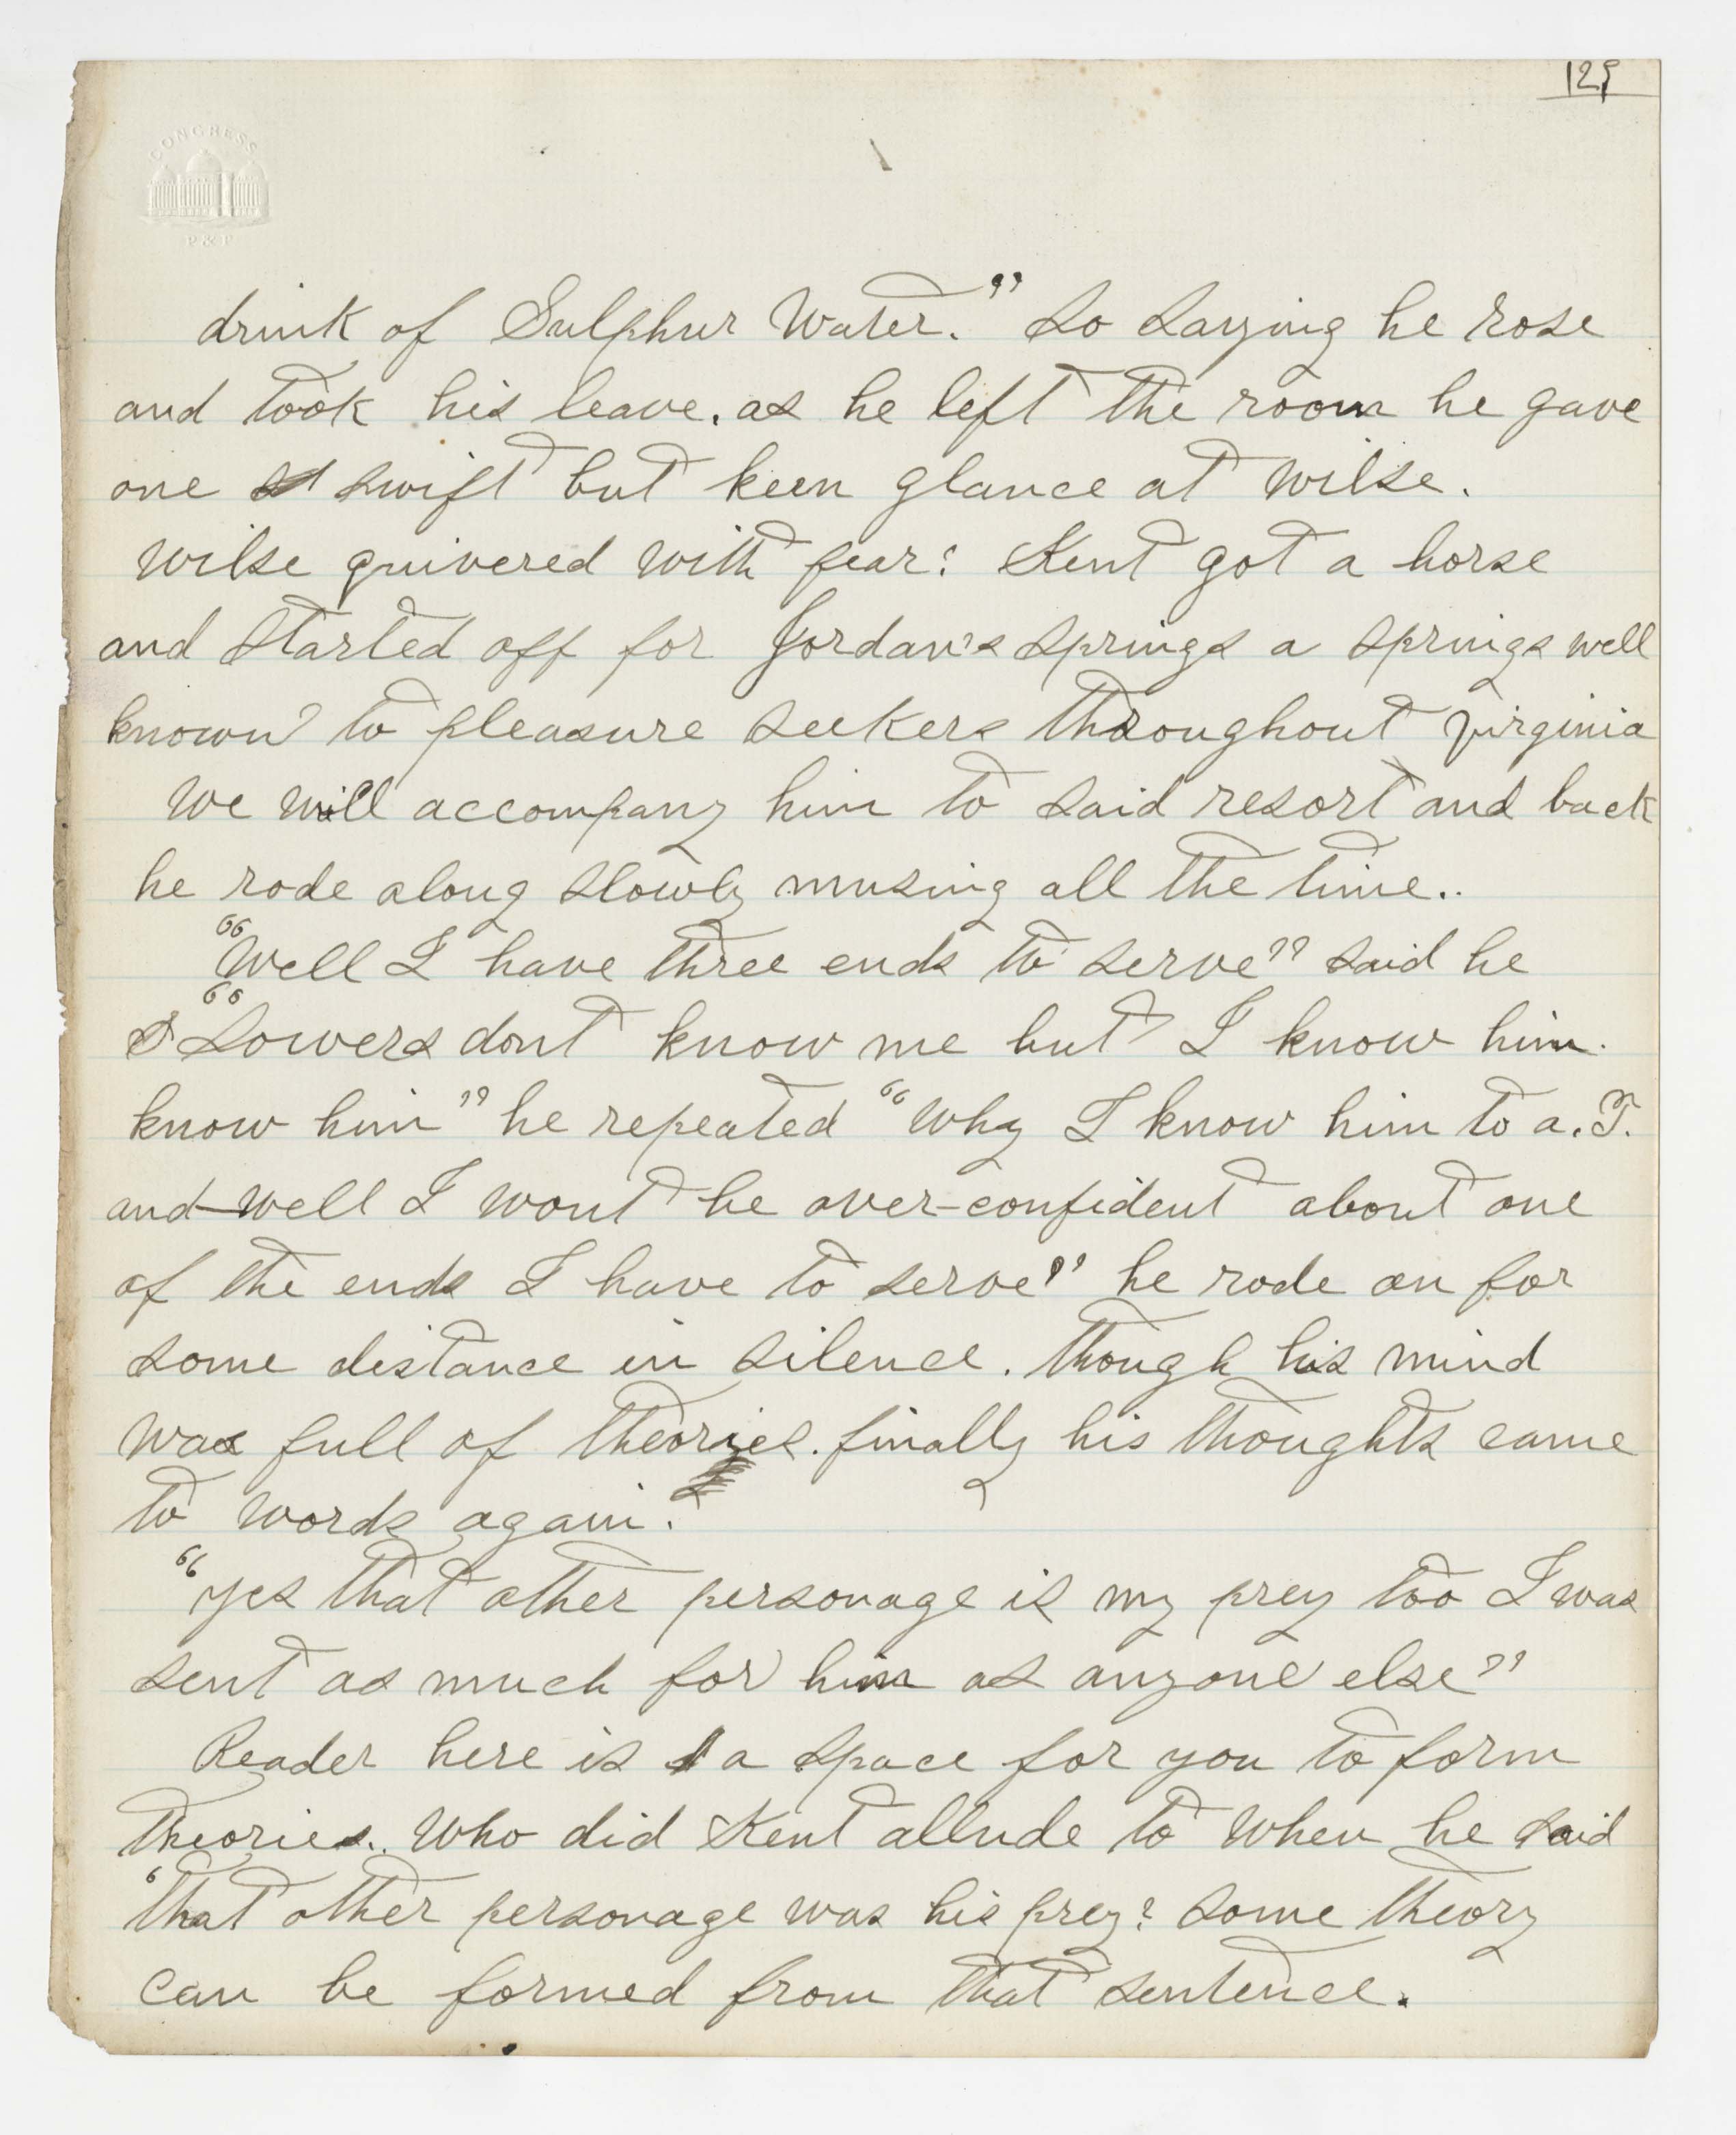 129
CONGRESS
P & P
drink of Sulphur Water." So saying he rose
and took his leave. as he left the room he gave
one swift but keen glance at Wilse.
Wilse quivered with fear: Kent got a horse
and started off for Jordan's springs a springs well
known to pleasure seekers throughout Virginia
We will accompany him to said resort and back
he rode along slowly musing all the time..
"Well I have three ends to serve" said he
"Sowers dont know me but I know him.
know him" he repeated "Why I know him to a. T.
and-well I wont be over-confident about one
of the ends I have to serve" he rode on for
some distance in silence. though his mind
was full of theories. finally his thoughts came
to words again.
"Yes that other personage is my prey too I was
sent as much for him as anyone else"
Reader here is a space for you to form
theories.. Who did Kent allude to when he said
'that other personage was his prey? some theory
can be formed from that sentence.